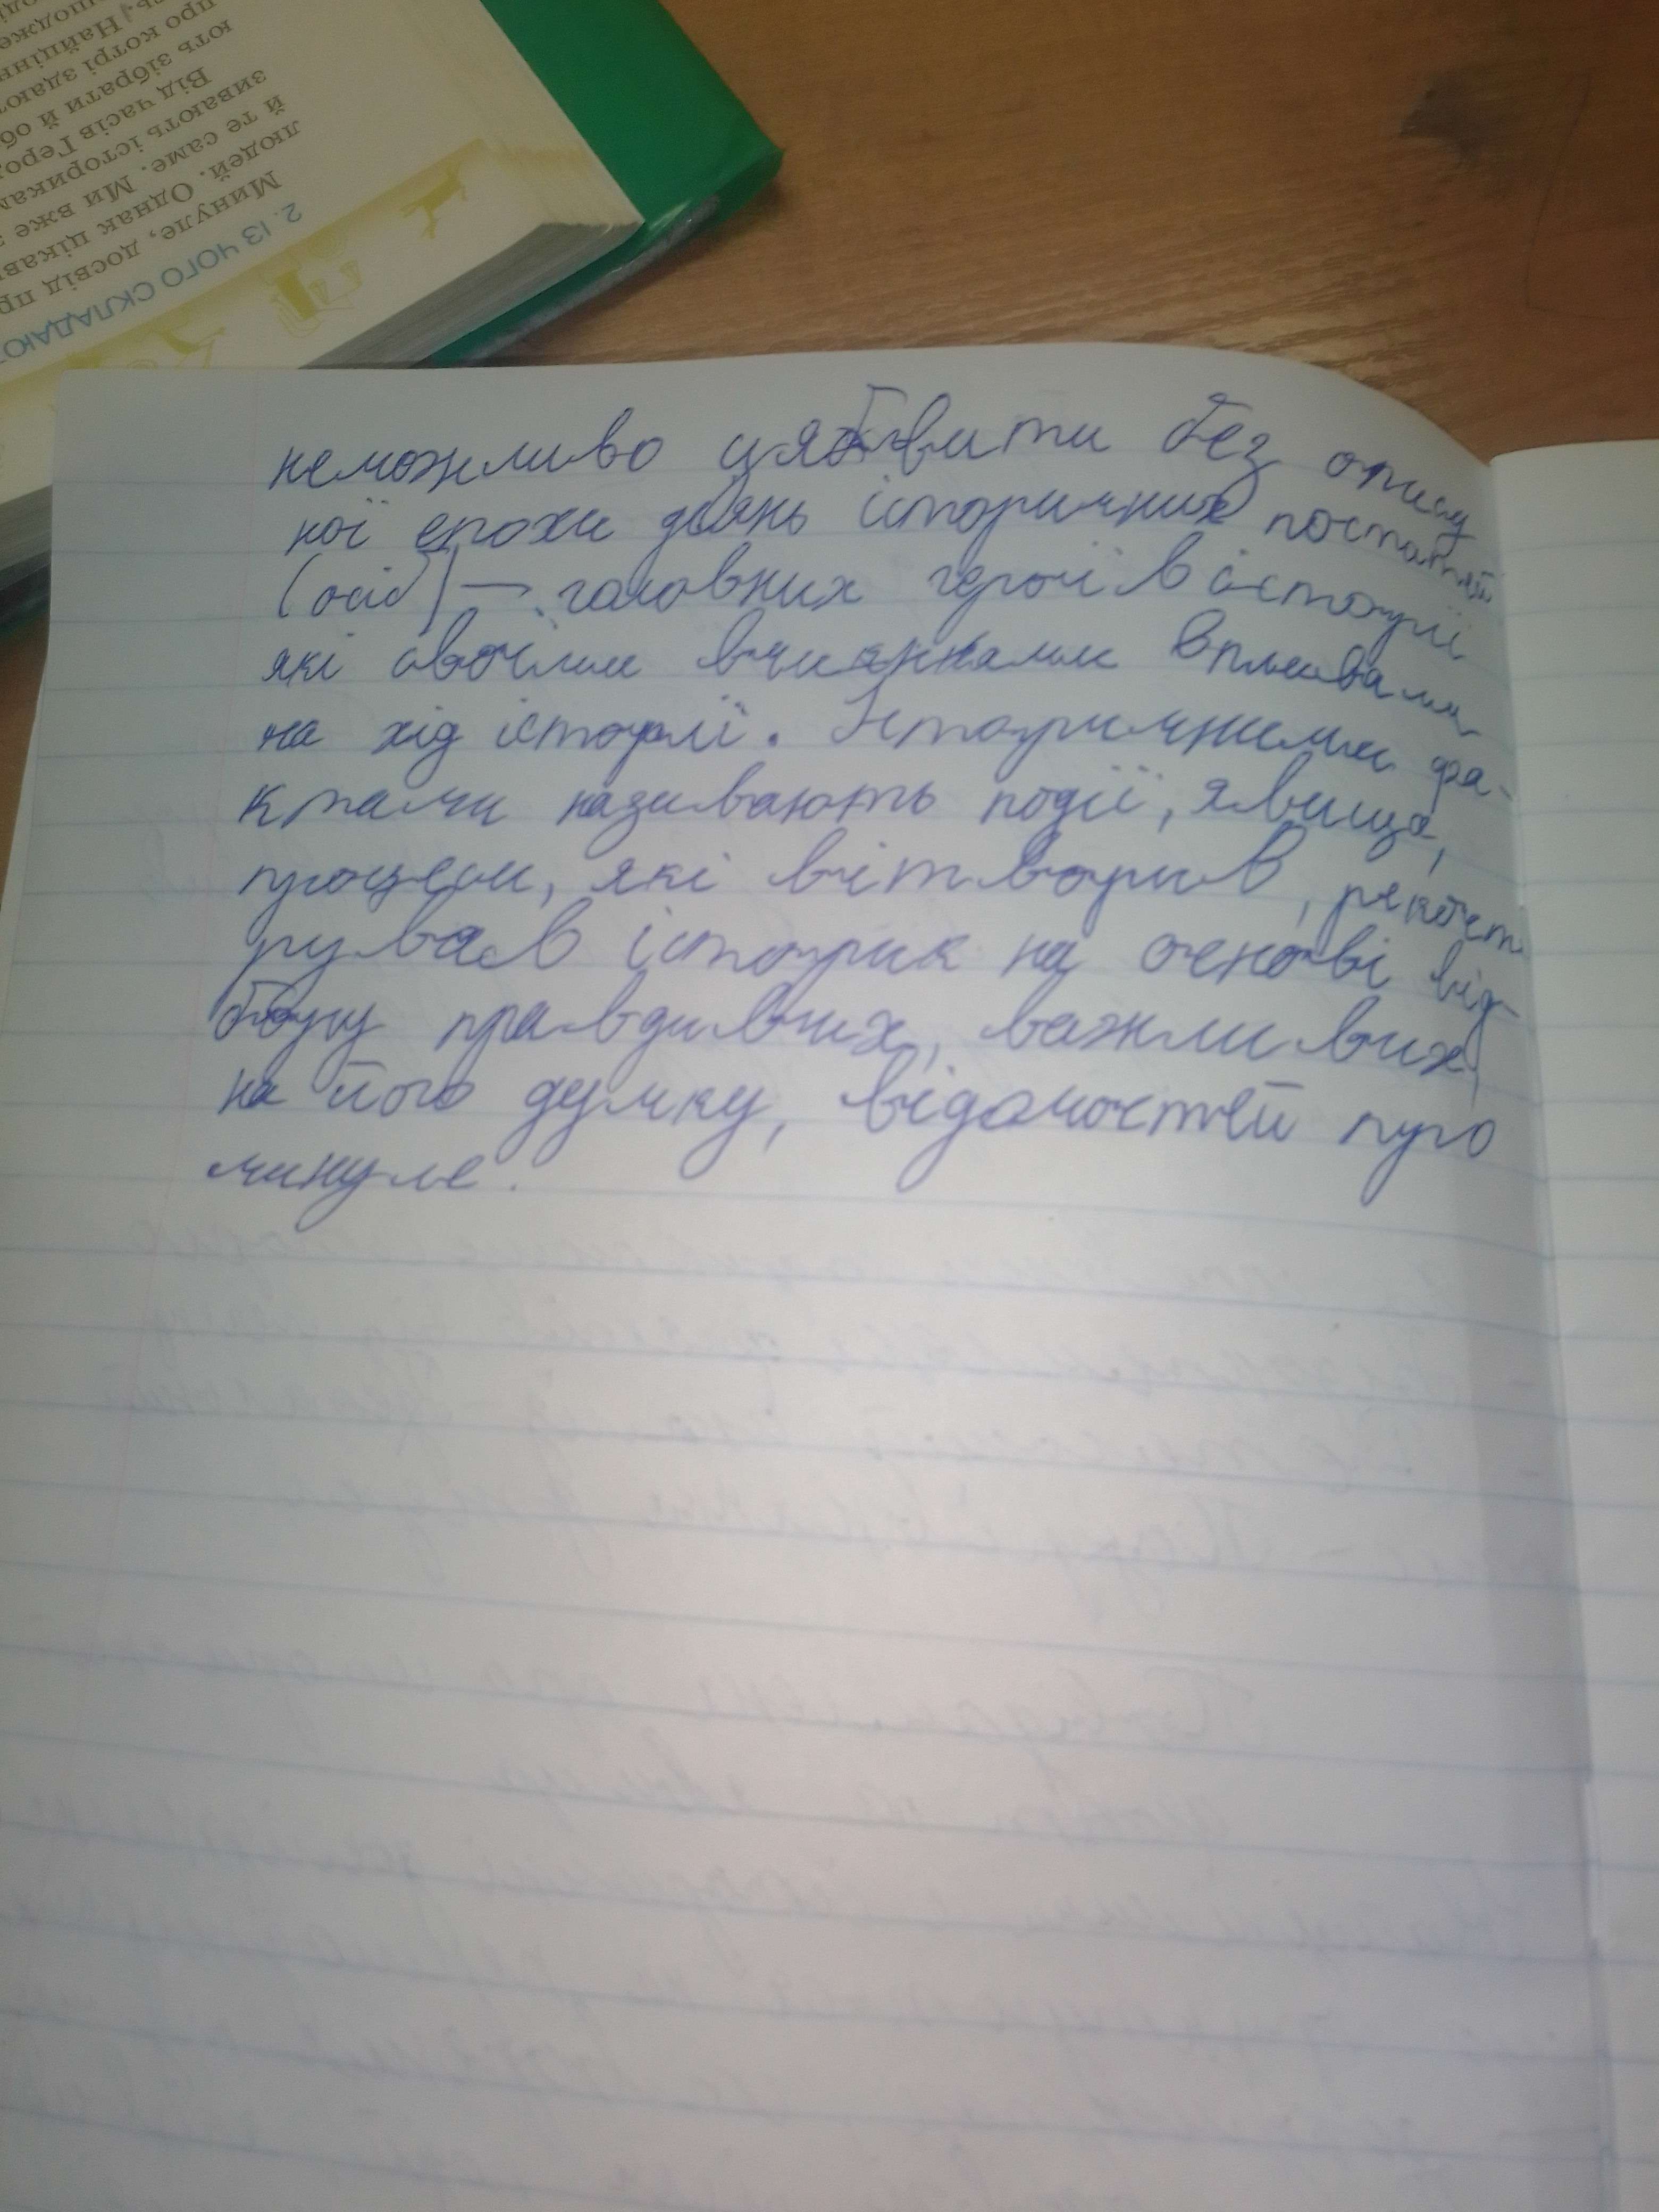 2. ІЗ ЧОГО СКЛАДАЮТ
Минуле, досвід пр
людей. Однак цікав
й те саме. Ми вже з
зивають історикам
Від часів Геро
зібрати й об
ють
про котрі здают
Найцінн
неможливо уябвити без опису
ної епохи діянь історичних постатей
(осіб) — головних героїв історії
які своїми вчинками впливали
на хід історії. Історичними фа-
ктами називають події, явища,
процеси, які вітворив, реконст
рував історик на основі від
бору правдивих, важливих,
на його думку, відомостей про
минуле.